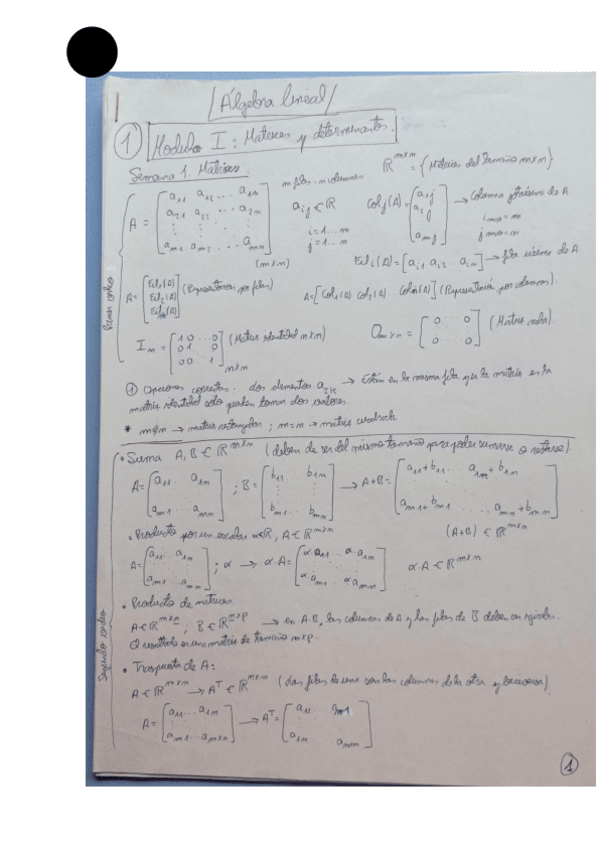 /Álgebra lineal/
① Modulo I: Matrices y determinantes.
Semana 1. Matrices
ℝᵐˣⁿ = {Matrices del tamaño m×n}
A = [a₁₁ a₁₂ ... a₁ₙ; a₂₁ a₂₂ ... a₂ₙ; ⋮ ⋮ ⋱ ⋮; aₘ₁ aₘ₂ ... aₘₓₙ] (m×n)
m filas - n columnas
aᵢⱼ ∈ ℝ
i = 1...m
j = 1...n
Colⱼ(A) =
→ Columna j-ésima de A
Filᵢ(A) = [aᵢ₁ aᵢ₂ aᵢₙ] → fila i-ésima de A.
A = [Fil₁(A); Fil₂(A); Filₘ(A)] (Representación por filas)
A = [Col₁(A) Col₂(A) ... Colₙ(A)] (Representación por columnas).
Iₙ = [1 0 ... 0; 0 1 0; 0 0 1] n×n (Matriz identidad n×n)
0ₘₓₙ = [0 0; 0 0] (Matriz nula).
① Opciones correctas. dos elementos a₂ₖ → Están en la misma fila y en la matriz en la
matriz identidad solo pueden tomar dos valores.
* m≠n → matriz rectangular ; m=n → matriz cuadrada
• Suma A, B ∈ ℝᵐˣⁿ (deben de ser del mismo tamaño para poder sumarse o restarse).
A = [a₁₁ ... a₁ₙ; aₘ₁ ... aₘₙ] ; B = [b₁₁ ... b₁ₙ; bₘ₁ ... bₘₙ] → A+B = [a₁₁+b₁₁ ... a₁ₙ+b₁ₙ; aₘ₁+bₘ₁ ... aₘₙ+bₘₙ]
(A+B) ∈ ℝᵐˣⁿ
• Producto por un escalar α∈ℝ, A ∈ ℝᵐˣⁿ
A = [a₁₁ ... a₁ₙ; aₘ₁ ... aₘₓₙ] ; α → α·A = [α·a₁₁ ... α·a₁ₙ; α·aₘ₁ α·aₘₓₙ]
α·A ∈ ℝᵐˣⁿ
• Producto de matrices.
A∈ℝᵐˣⁿ ; B∈ℝⁿˣᵖ → en A·B, las columnas de A y las filas de B deben ser iguales.
El resultado es una matriz de tamaño m×p.
• Traspuesta de A:
A ∈ ℝᵐˣⁿ → Aᵀ ∈ ℝⁿˣᵐ (Las filas de una son las columnas de la otra y viceversa)
A = [a₁₁ ... a₁ₙ; aₘ₁ ... aₘₓₙ] → Aᵀ = [a₁₁ aₘ₁; a₁ₙ aₘₓₙ]
Primer video
Segundo video
①